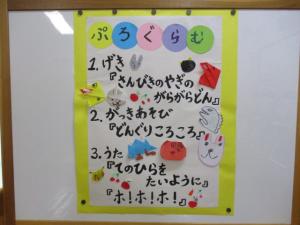 ぷろぐらむ
1. げき
『さんびきのやぎの
がらがらどん』
2. がっきあそび
『どんぐりころころ』
3. うた
『てのひらを
たいように』
『ホ!ホ!ホ!』